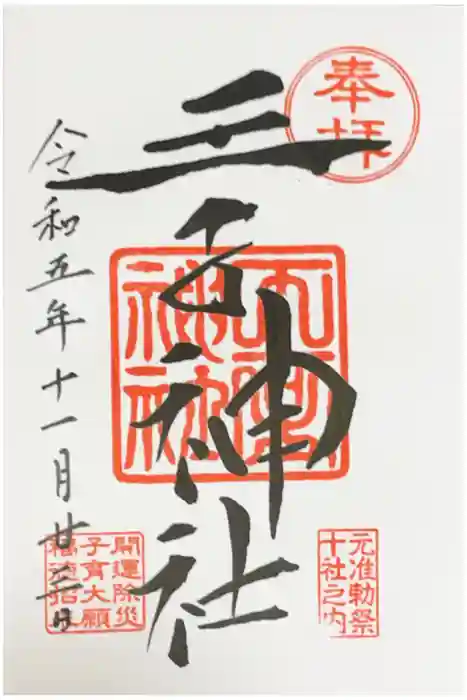 奉拝
王子神社
令和五年十一月廿三日
元准勅祭
十社之内
開運除災
子育大願